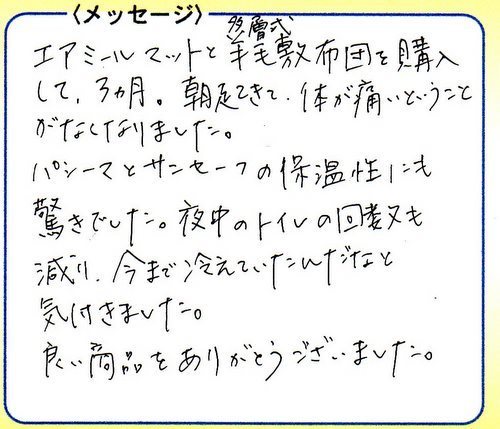 〈メッセージ〉
多層式
エアミールマットと羊毛敷布団を購入
して、3カ月。朝起きてきて、体が痛いということ
がなくなりました。
パシーマとサンセーフの保温性にも
驚きでした。夜中のトイレの回数も
減り、今まで冷えていたんだなと
気付きました。
良い商品をありがとうございました。